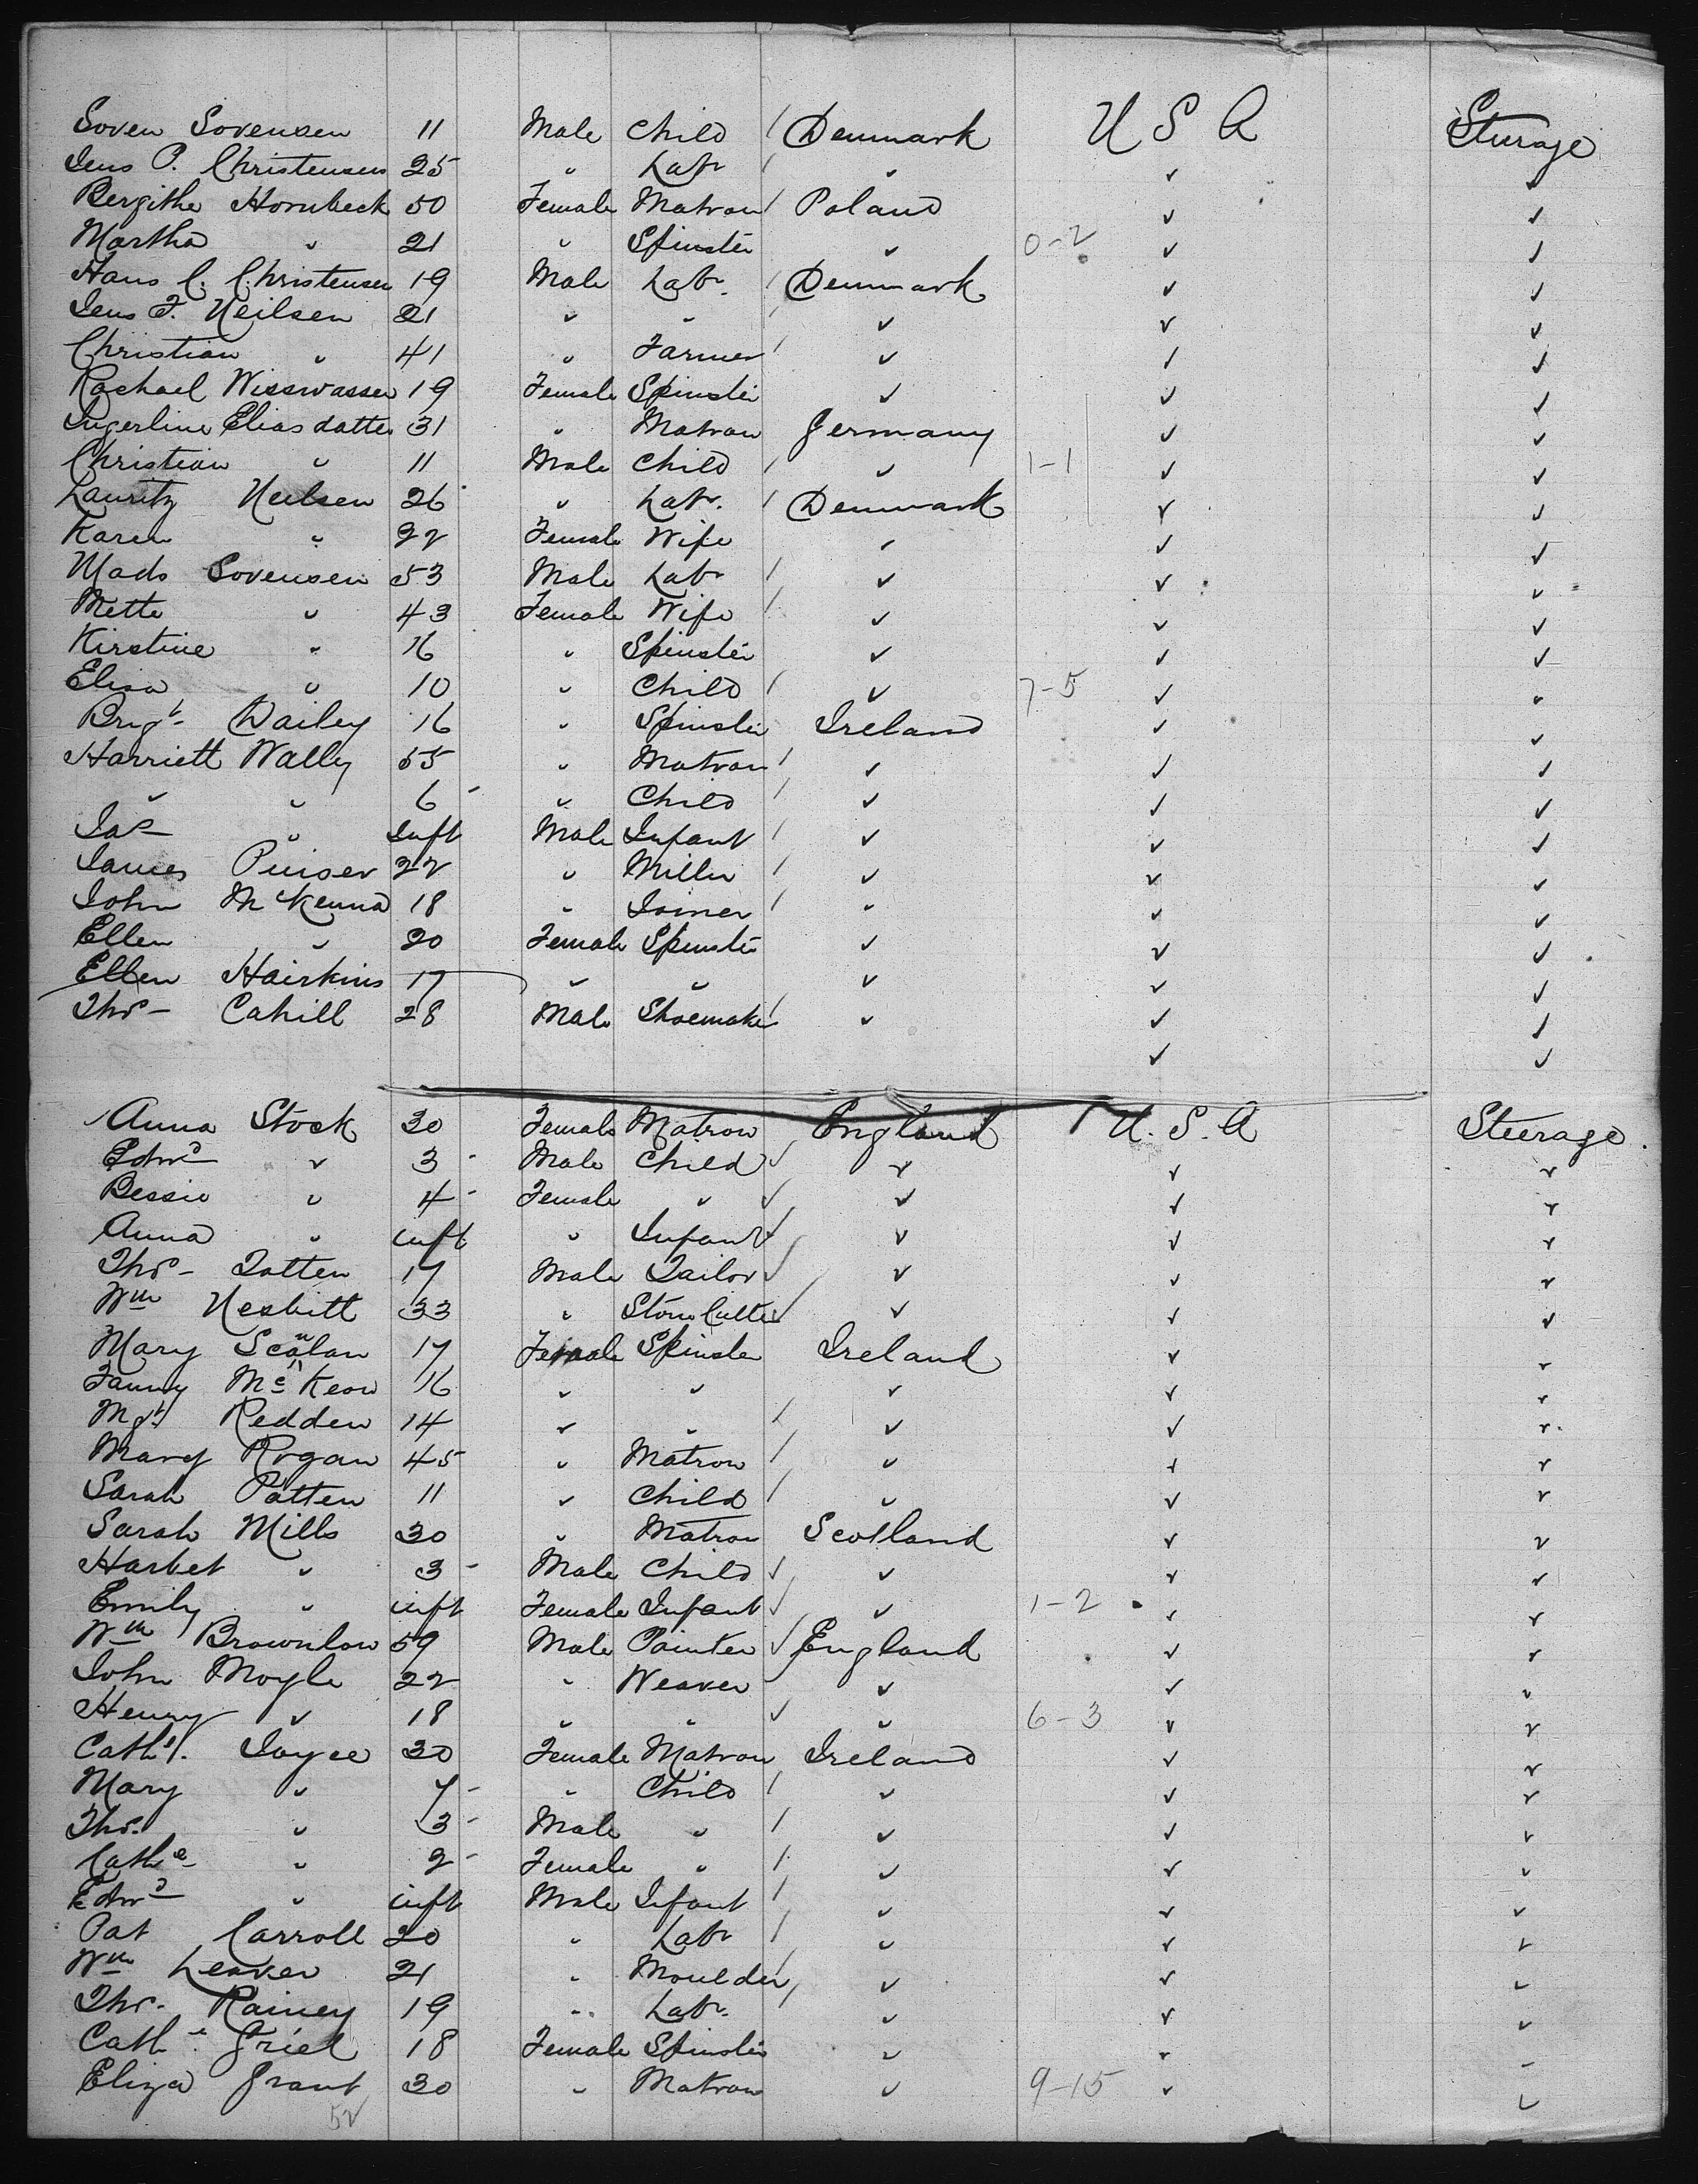 Soven Sovensen 11 Male Child / Denmark U S A Steerage
Jens P. Christensen 25 " Labr / " ✓ ✓
Bergithe Hornbeck 50 Female Matron / Poland ✓ ✓
Martha " 21 " Spinster " 0-2 ✓ ✓
Hans C. Christensen 19 Male Labr. / Denmark ✓ ✓
Jens F. Neilsen 21 " " / " ✓ ✓
Christian " 41 " Farmer / " ✓ ✓
Rachael Wisswasser 19 Female Spinster " ✓ ✓
Ingerline Elias datter 31 " Matron Germany ✓ ✓
Christian " 11 Male Child / " 1-1 ✓ ✓
Lauritz Neilsen 26 " Labr. / Denmark ✓ ✓
Karen " 22 Female Wife " ✓ ✓
Mads Sovensen 53 Male Labr / " ✓ ✓
Mette " 43 Female Wife / " ✓ ✓
Kirstine " 16 " Spinster " ✓ ✓
Elisa " 10 " Child / " 7-5 ✓ "
Brigt- Dailey 16 " Spinster Ireland ✓ ✓
Harriett Wally 55 " Matron / " ✓ ✓
" " 6 - " Child / " ✓ ✓
Jas " Inft Male Infant / " ✓ ✓
James Puiser 22 " Miller / " ✓ ✓
John McKenna 18 " Joiner / " ✓ ✓
Ellen " 20 Female Spinster " ✓ ✓
Ellen Hairkins 17 " " " ✓ ✓
Thos- Cahill 28 Male Shoemaker / " ✓ ✓
✓ ✓
Anna Stock 30 Female Matron England U.S.A Steerage.
Edwd " 3 - Male Child ✓ " ✓ ✓
Bessie " 4 - Female " ✓ " ✓ ✓
Anna " inft " Infant ✓ " ✓ ✓
Thos- Totten 17 Male Tailor ✓ " ✓ ✓
Wm Nesbitt 33 " Stone Cutter ✓ " ✓ ✓
Mary Scanlan 17 Female Spinster Ireland ✓ ✓
Fanny McKeon 16 " " " ✓ ✓
Mgt Redden 14 " " / " ✓ ✓
Mary Rogan 45 " Matron / " ✓ ✓
Sarah Patten 11 " Child / " ✓ ✓
Sarah Mills 30 " Matron Scotland ✓ ✓
Harbet " 3 - Male Child ✓ " ✓ ✓
Emily " inft Female Infant ✓ " 1-2 ✓ ✓
Wm Brownlow 59 Male Painter ✓ England ✓ ✓
John Moyle 22 " Weaver " ✓ ✓
Henry " 18 " " ✓ " 6-3 ✓ ✓
Cath'e. Joyce 30 Female Matron Ireland ✓ ✓
Mary " 7 - " Child / " ✓ ✓
Thos. " 3 - Male " / " ✓ ✓
Cathe " 2 - Female " / " ✓ ✓
Edwd " inft Male Infant / " ✓ ✓
Pat Carroll 20 " Labr / " ✓ ✓
Wm Leaver 21 " Moulder / " ✓ ✓
Thos. Rainey 19 " Labr. " ✓ ✓
Cathe Griel 18 Female Spinster " ✓ -
Eliza Grant 30 " Matron " 9-15 ✓ ✓
52